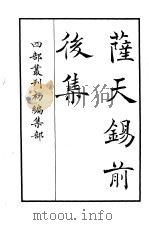 薩天錫前
後集
四部叢刊初編集部
mtoou.info